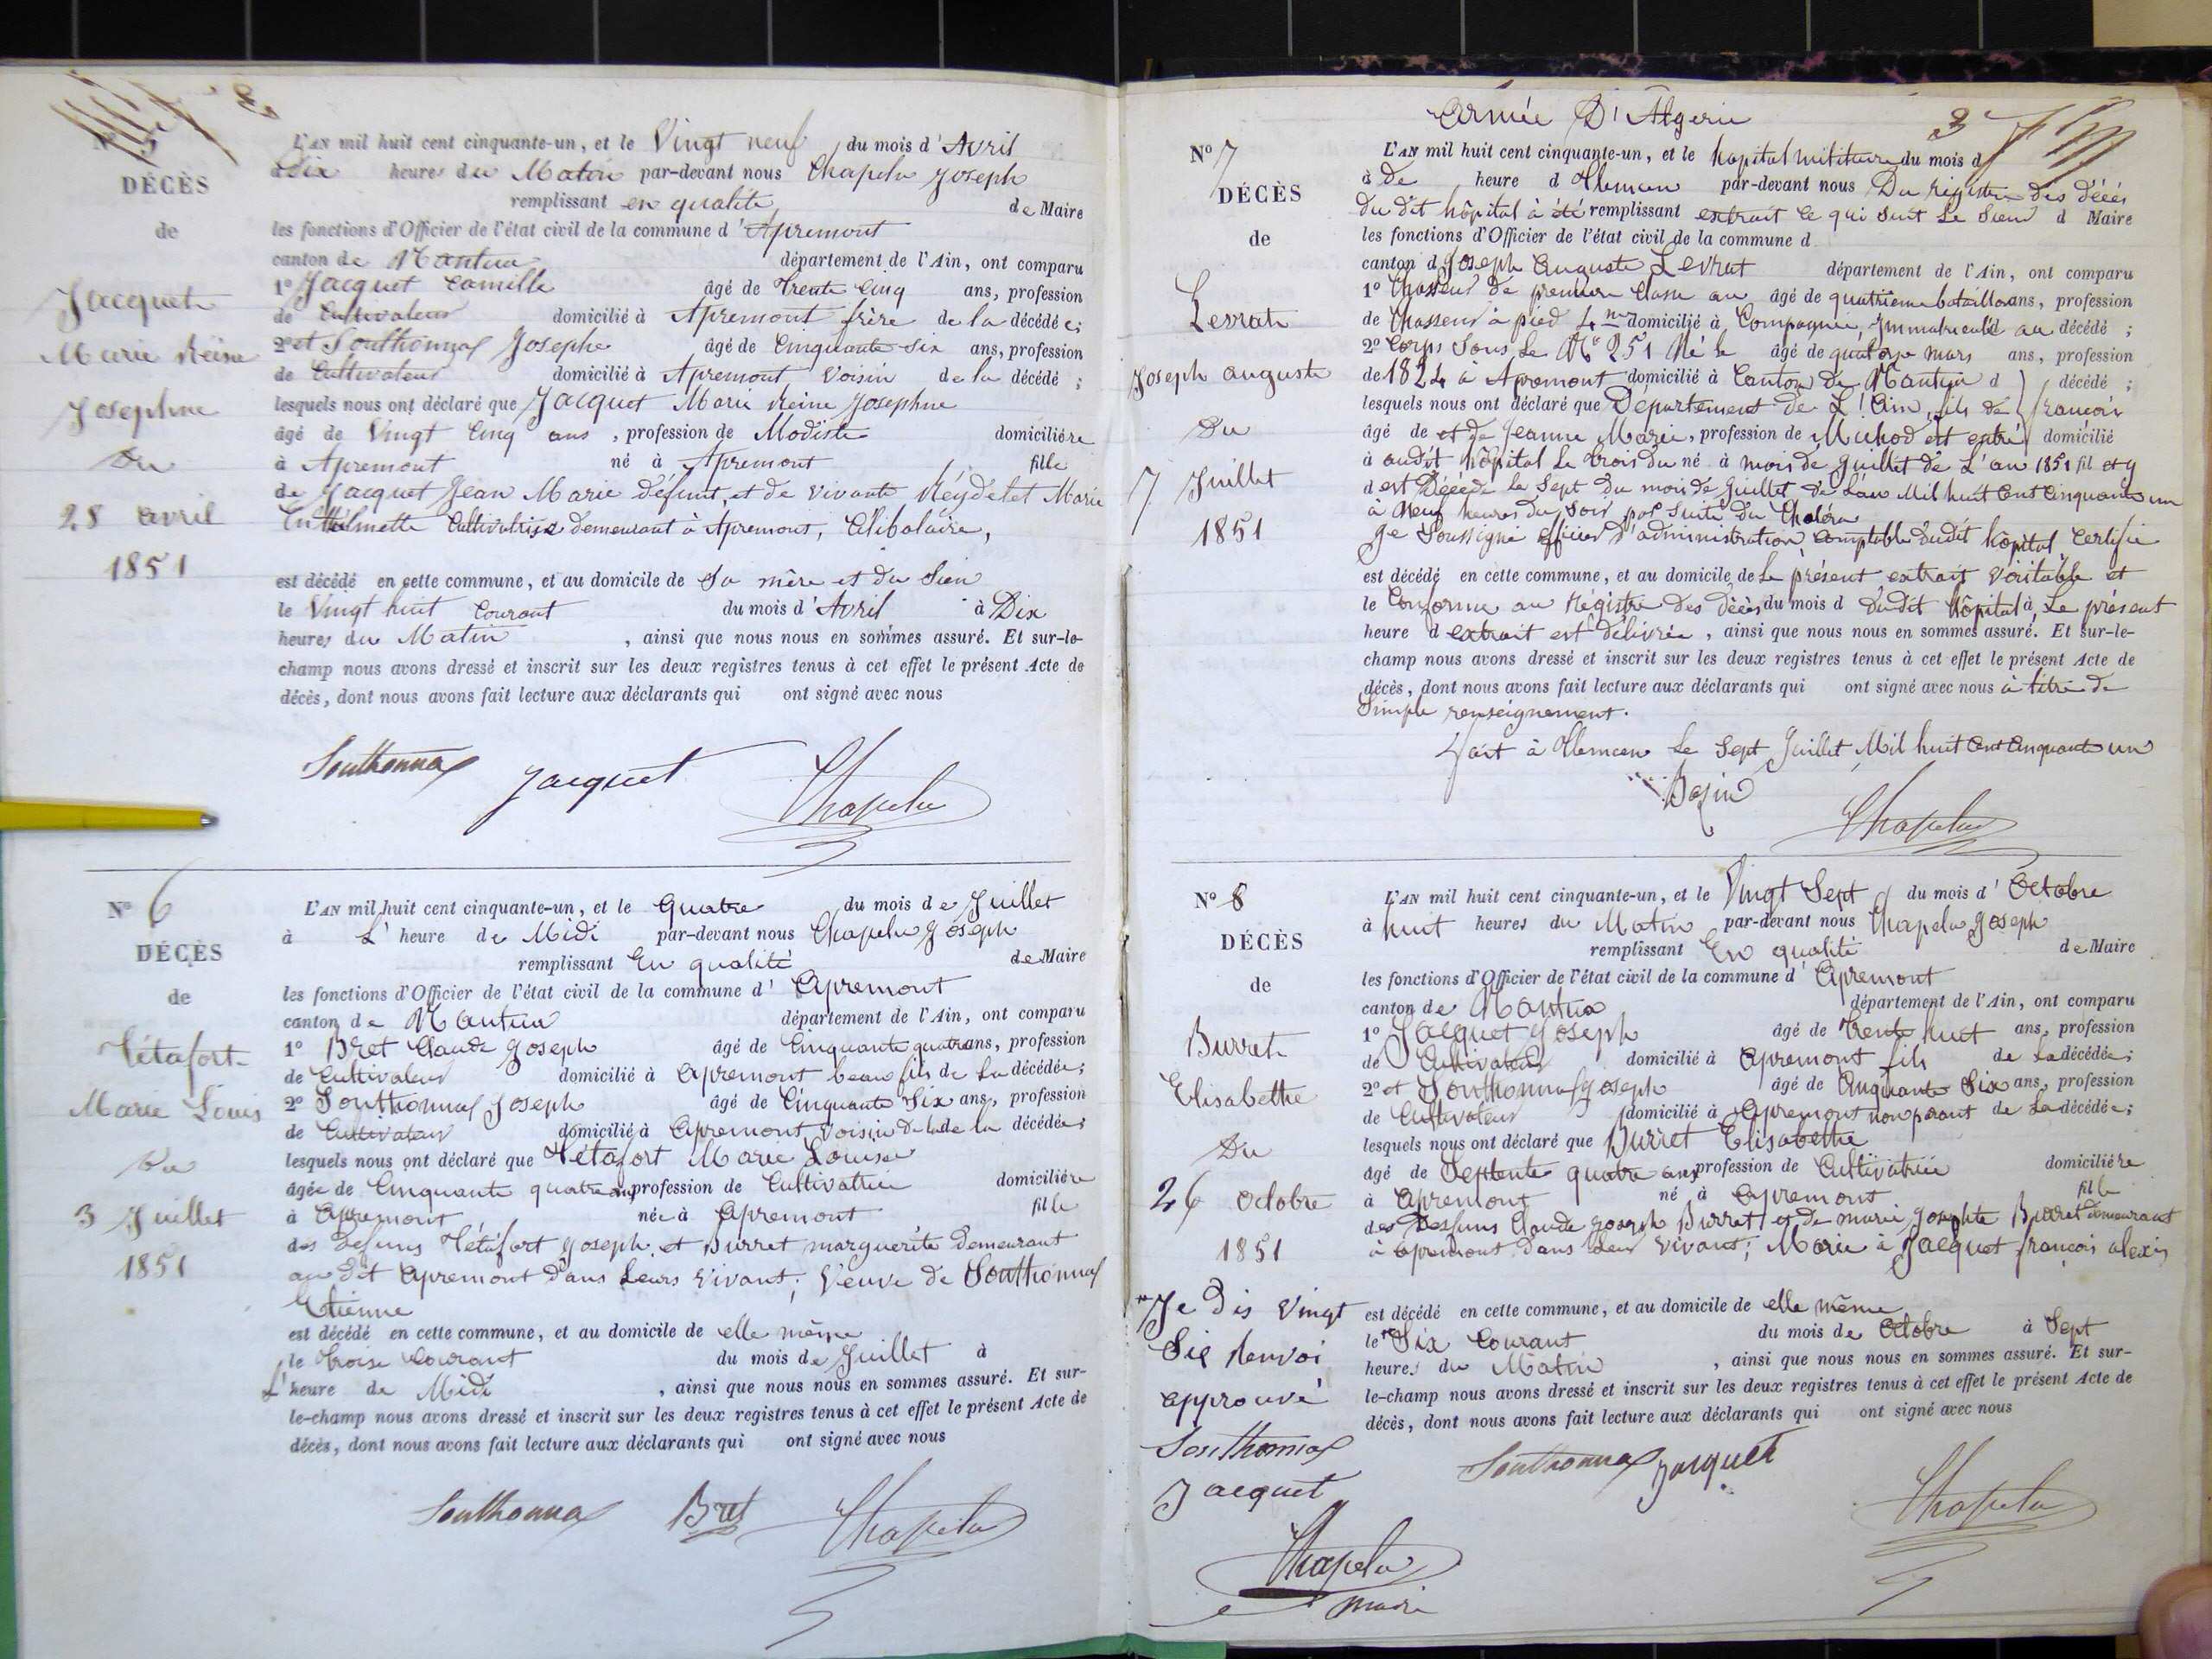 N° 5
DÉCÈS
de
Jacquet
Marie Reine
Josephine
Du
28 avril
1851
L'AN mil huit cent cinquante-un, et le Vingt neuf du mois d'Avril
à Dix heures du Matin par-devant nous Chapelu Joseph
remplissant en qualité de Maire
les fonctions d'Officier de l'état civil de la commune d'Apremont
canton de Nantua département de l'Ain, ont comparu
1° Jacquet Camille âgé de Trente Cinq ans, profession
de Cultivateur domicilié à Apremont frère de la décédée;
2° et Southonnax Josephe âgé de Cinquante Six ans, profession
de Cultivateur domicilié à Apremont Voisin de la décédé;
lesquels nous ont déclaré que Jacquet Marie Reine Josephine
âgé de Vingt Cinq ans, profession de Modiste domiciliére
à Apremont né à Apremont fille
de Jacquet Jean Marie défunt, et de vivante Reydelet Marie
Cultivatrice demeurant à Apremont, Célibataire,
est décédé en cette commune, et au domicile de Sa mère et du Sien
le Vingt huit Courant du mois d'Avril à Dix
heures du Matin, ainsi que nous nous en sommes assuré. Et sur-le-
champ nous avons dressé et inscrit sur les deux registres tenus à cet effet le présent Acte de
décès, dont nous avons fait lecture aux déclarants qui ont signé avec nous
Southonnax Jacquet Chapelu
N° 6
DÉCÈS
de
Tétafort
Marie Louis
Du
3 Juillet
1851
L'AN mil huit cent cinquante-un, et le Quatre du mois de Juillet
à L'heure de Midi par-devant nous Chapelu Joseph
remplissant En qualité de Maire
les fonctions d'Officier de l'état civil de la commune d'Apremont
canton de Nantua département de l'Ain, ont comparu
1° Bret Claude Joseph âgé de Cinquante quatre ans, profession
de Cultivateur domicilié à Apremont beau fils de La décédée;
2° Southonnax Joseph âgé de Cinquante Six ans, profession
de Cultivateur domicilié à Apremont, Voisin de la décédée;
lesquels nous ont déclaré que Tétafort Marie Louise
âgée de Cinquante quatre ans, profession de Cultivatrice domiciliére
à Apremont née à Apremont fille
des défunts Tétafort Joseph et Burret marguerite Demeurant
au dit Apremont dans Leurs vivant; Veuve de Southonnax
Etienne
est décédé en cette commune, et au domicile de elle même
le trois Courant du mois de Juillet à
L'heure de Midi, ainsi que nous nous en sommes assuré. Et sur-
le-champ nous avons dressé et inscrit sur les deux registres tenus à cet effet le présent Acte de
décès, dont nous avons fait lecture aux déclarants qui ont signé avec nous
Southonnax Bret Chapelu
Armée D'Algerie
3
N° 7
DÉCÈS
de
Levrat
Joseph auguste
Du
7 Juillet
1851
L'AN mil huit cent cinquante-un, et le hopital militaire du mois d
à de heure d Tlemcen par-devant nous Du registre des décés
Du dit hôpital à été remplissant extrait ce qui suit Le Sieur d Maire
les fonctions d'Officier de l'état civil de la commune d
canton d Joseph Auguste Levrat département de l'Ain, ont comparu
1° Chasseur de premiere Classe au âgé de quatrième bataillon ans, profession
de Chasseur à pied 4me domicilié à Compagnie, Immatriculé au décédé;
2° Corps Sous Le N° 251 Né le âgé de quatorze mars ans, profession
de 1824 à Apremont domicilié à Canton de Nantua d décédé;
lesquels nous ont déclaré que Departement de L'Ain, fils de françois
âgé de et de Jeanne Marie, profession de Muhod est entré domicilié
à audit hôpital Le trois du né à mois de Juillet de L'an 1851 fil et y
d est Décédé le Sept Du mois de Juillet de L'an Mil huit Cent Cinquante un
à Neuf heures du Soir par Suite Du Choléra
Je Soussigné officier D'administration, Comptable Dudit hôpital, Certifie
est décédé en cette commune, et au domicile de Le présent extrait Véritable et
le Conforme au Régistre des décès du mois d Dudit hôpital à Le présent
heure d extrait est délivrée, ainsi que nous nous en sommes assuré. Et sur-le-
champ nous avons dressé et inscrit sur les deux registres tenus à cet effet le présent Acte de
décès, dont nous avons fait lecture aux déclarants qui ont signé avec nous à titre de
Simple renseignement.
Fait à Tlemcen Le Sept Juillet Mil huit Cent Cinquante un
Chapelu
N° 8
DÉCÈS
de
Burret
Elisabethe
Du
26 Octobre
1851
Je dis Vingt
Six Renvoi
approuvé
Southonnax
Jacquet
Chapelu
maire
L'AN mil huit cent cinquante-un, et le Vingt Sept du mois d'Octobre
à huit heures du Matin par-devant nous Chapelu Joseph
remplissant En qualité de Maire
les fonctions d'Officier de l'état civil de la commune d'Apremont
canton de Nantua département de l'Ain, ont comparu
1° Jacquet Joseph âgé de Trente huit ans, profession
de Cultivateur domicilié à Apremont fils de La décédée;
2° et Southonnax Joseph âgé de Cinquante Six ans, profession
de Cultivateur domicilié à Apremont non parant de La décédée;
lesquels nous ont déclaré que Burret Elisabethe
âgé de Septente quatre ans, profession de Cultivatrice domiciliére
à Apremont né à Apremont fille
des Deffuns Claude Joseph Burret et de marie Josephte Burret demeurant
à apremont, dans Leur Vivant; Marie à Jacquet françois alexis
est décédé en cette commune, et au domicile de elle même
le Six Courant du mois de Octobre à Sept
heures du Matin, ainsi que nous nous en sommes assuré. Et sur-
le-champ nous avons dressé et inscrit sur les deux registres tenus à cet effet le présent Acte de
décès, dont nous avons fait lecture aux déclarants qui ont signé avec nous
Southonnax Jacquet Chapelu